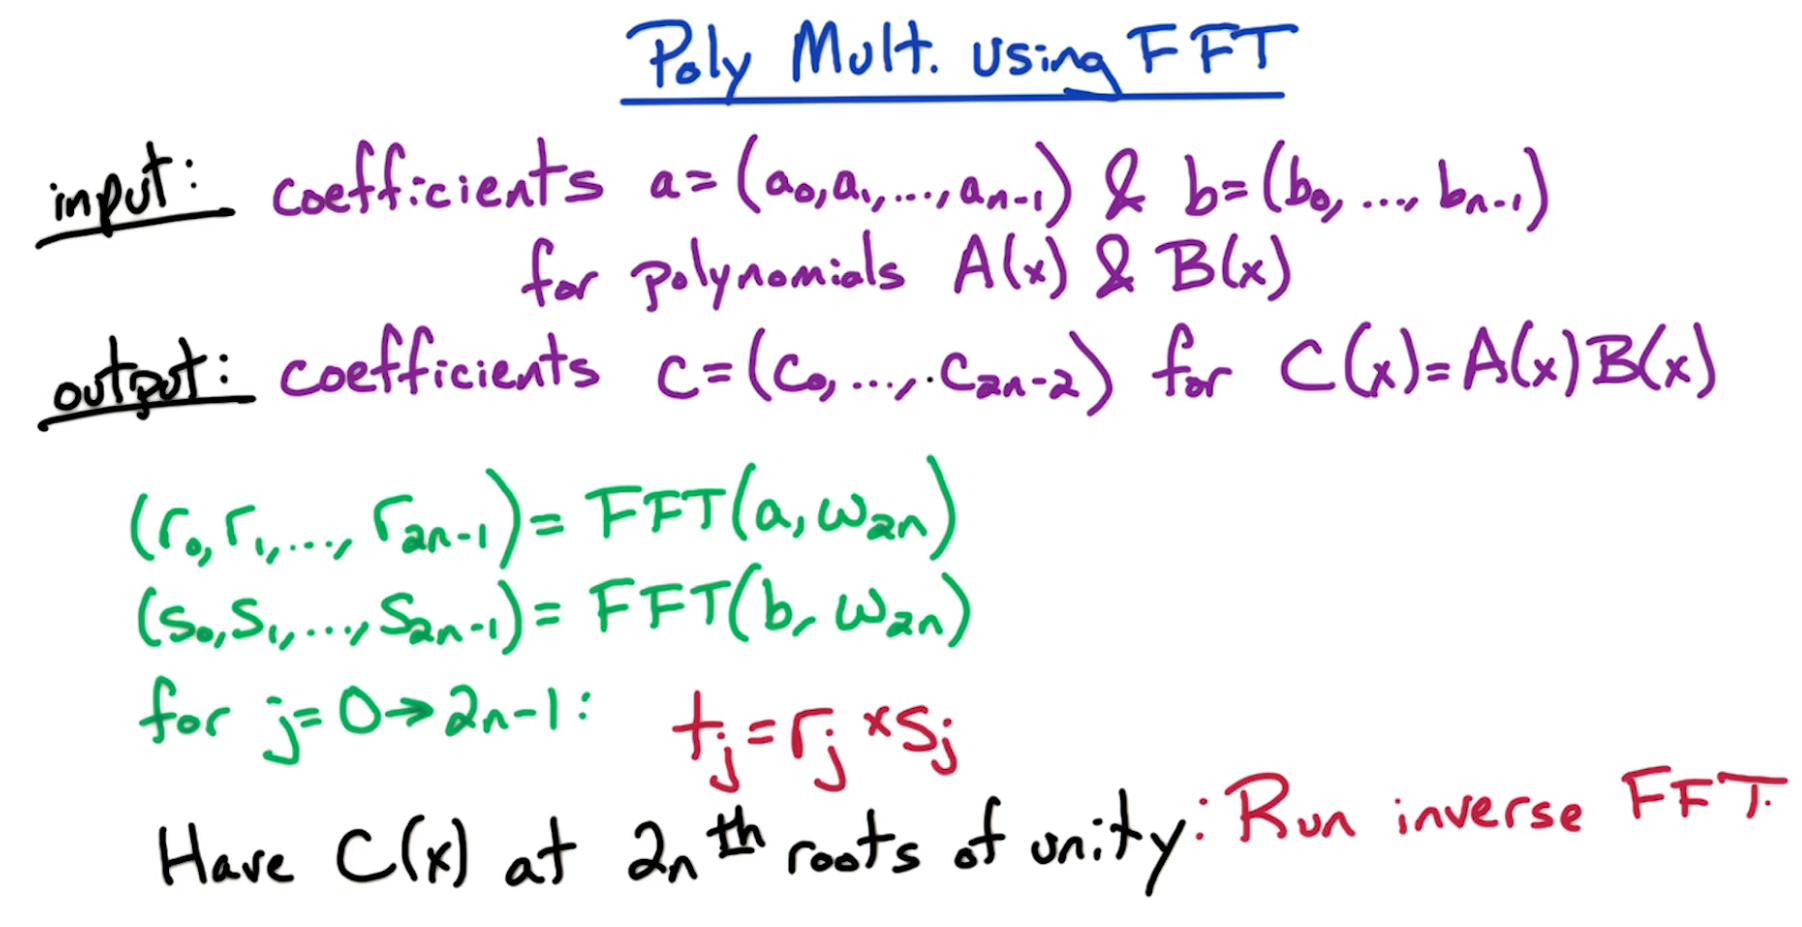 Poly Mult. using FFT
input: coefficients a=(a₀,a₁,...,aₙ₋₁) & b=(b₀,...,bₙ₋₁)
for polynomials A(x) & B(x)
output: coefficients c=(c₀,...,c₂ₙ₋₂) for C(x)=A(x)B(x)
(r₀,r₁,...,r₂ₙ₋₁)= FFT(a,ω₂ₙ)
(s₀,s₁,...,s₂ₙ₋₁)= FFT(b,ω₂ₙ)
for j=0→2n-1: tⱼ=rⱼ×sⱼ
Have C(x) at 2nᵗʰ roots of unity: Run inverse FFT.